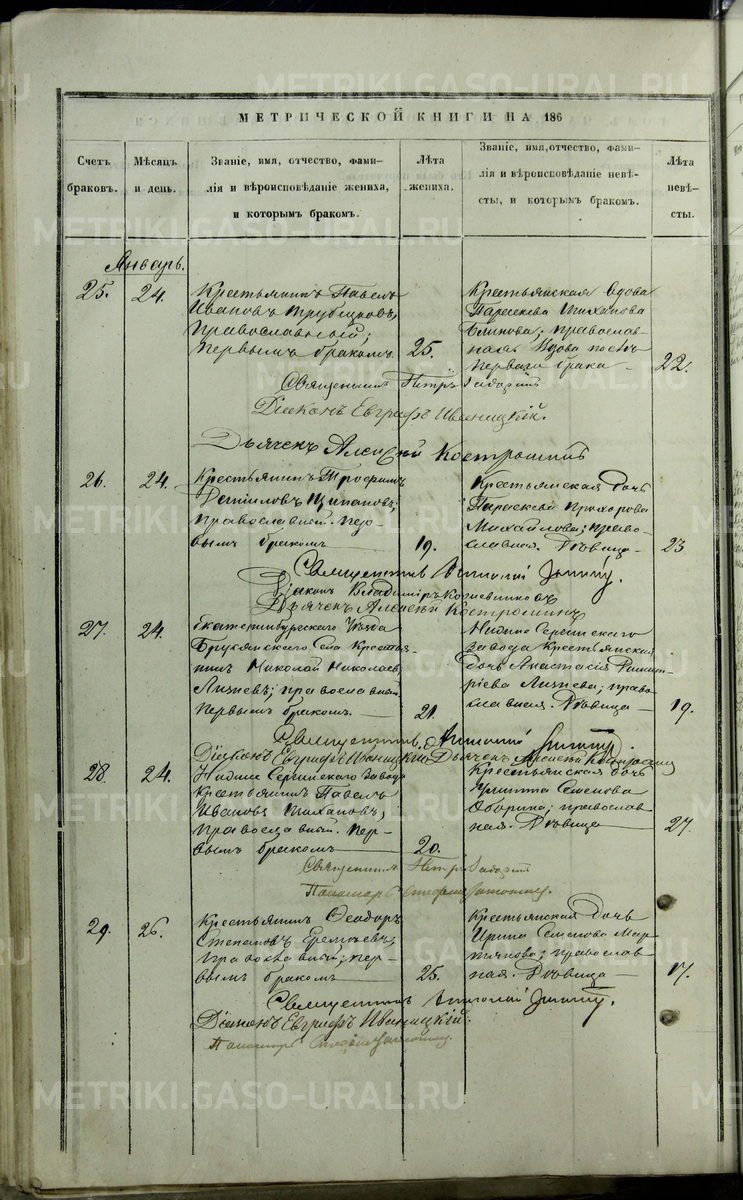 МЕТРИЧЕСКОЙ КНИГИ НА 186
Счетъ
браковъ.
Мѣсяцъ
и день.
Званіе, имя, отчество, фами-
лія и вѣроисповѣданіе жениха,
и которымъ бракомъ.
Лѣта
жениха.
Званіе, имя,отчество, фами-
лія и вѣроисповѣданіе невѣ-
сты, и которымъ бракомъ.
Лѣта
невѣ-
сты.
Январь.
25. 24.
Крестьянинъ Павелъ
Ивановъ Трубецковъ,
Православный;
первымъ бракомъ 25.
Крестьянская вдова
Параскева Тиханова
Блинова; православ-
ная. Вдова послѣ
перваго брака 22.
Священникъ Петръ
Діаконъ Евграфъ Иваницкій.
Дьячекъ Алексѣй Костроминъ
26. 24.
Крестьянинъ Трофимъ
Даниловъ Щипановъ;
православный. Пер-
вымъ бракомъ 19.
Крестьянская дочь
Параскева Прохорова
Михайлова; право-
славная. Дѣвица 23
Священникъ Антоній
Діаконъ Владиміръ
Дьячекъ Алексѣй Костроминъ
27. 24.
Екатеринбургскаго Уѣзда
Брусянскаго Села Крестья-
нинъ Николай Николаевъ
православный
Первымъ бракомъ. 21.
Нижне Сергинскаго
Завода Крестьянская
дочь Анастасія Димит-
ріева; право-
славная. Дѣвица 19.
Священникъ Антоній
Діаконъ Евграфъ Иваницкій Дьячекъ Алексѣй Костроминъ
28. 24.
Нижне Сергинскаго Завода
Крестьянинъ Павелъ
Ивановъ Тихановъ,
Православный. Пер-
вымъ бракомъ 20.
Крестьянская дочь
Семенова
Оборина; православ-
ная. Дѣвица 27.
Священникъ Петръ
Пономарь
29. 26.
Крестьянинъ Ѳеодоръ
Степановъ Еремѣевъ;
Православный; пер-
вымъ бракомъ 25.
Крестьянская дочь
Ирина Семенова Мар-
тьянова; православ-
ная. Дѣвица 17.
Священникъ Антоній
Діаконъ Евграфъ Иваницкій.
Пономарь
METRIKI.GASO-URAL.RU